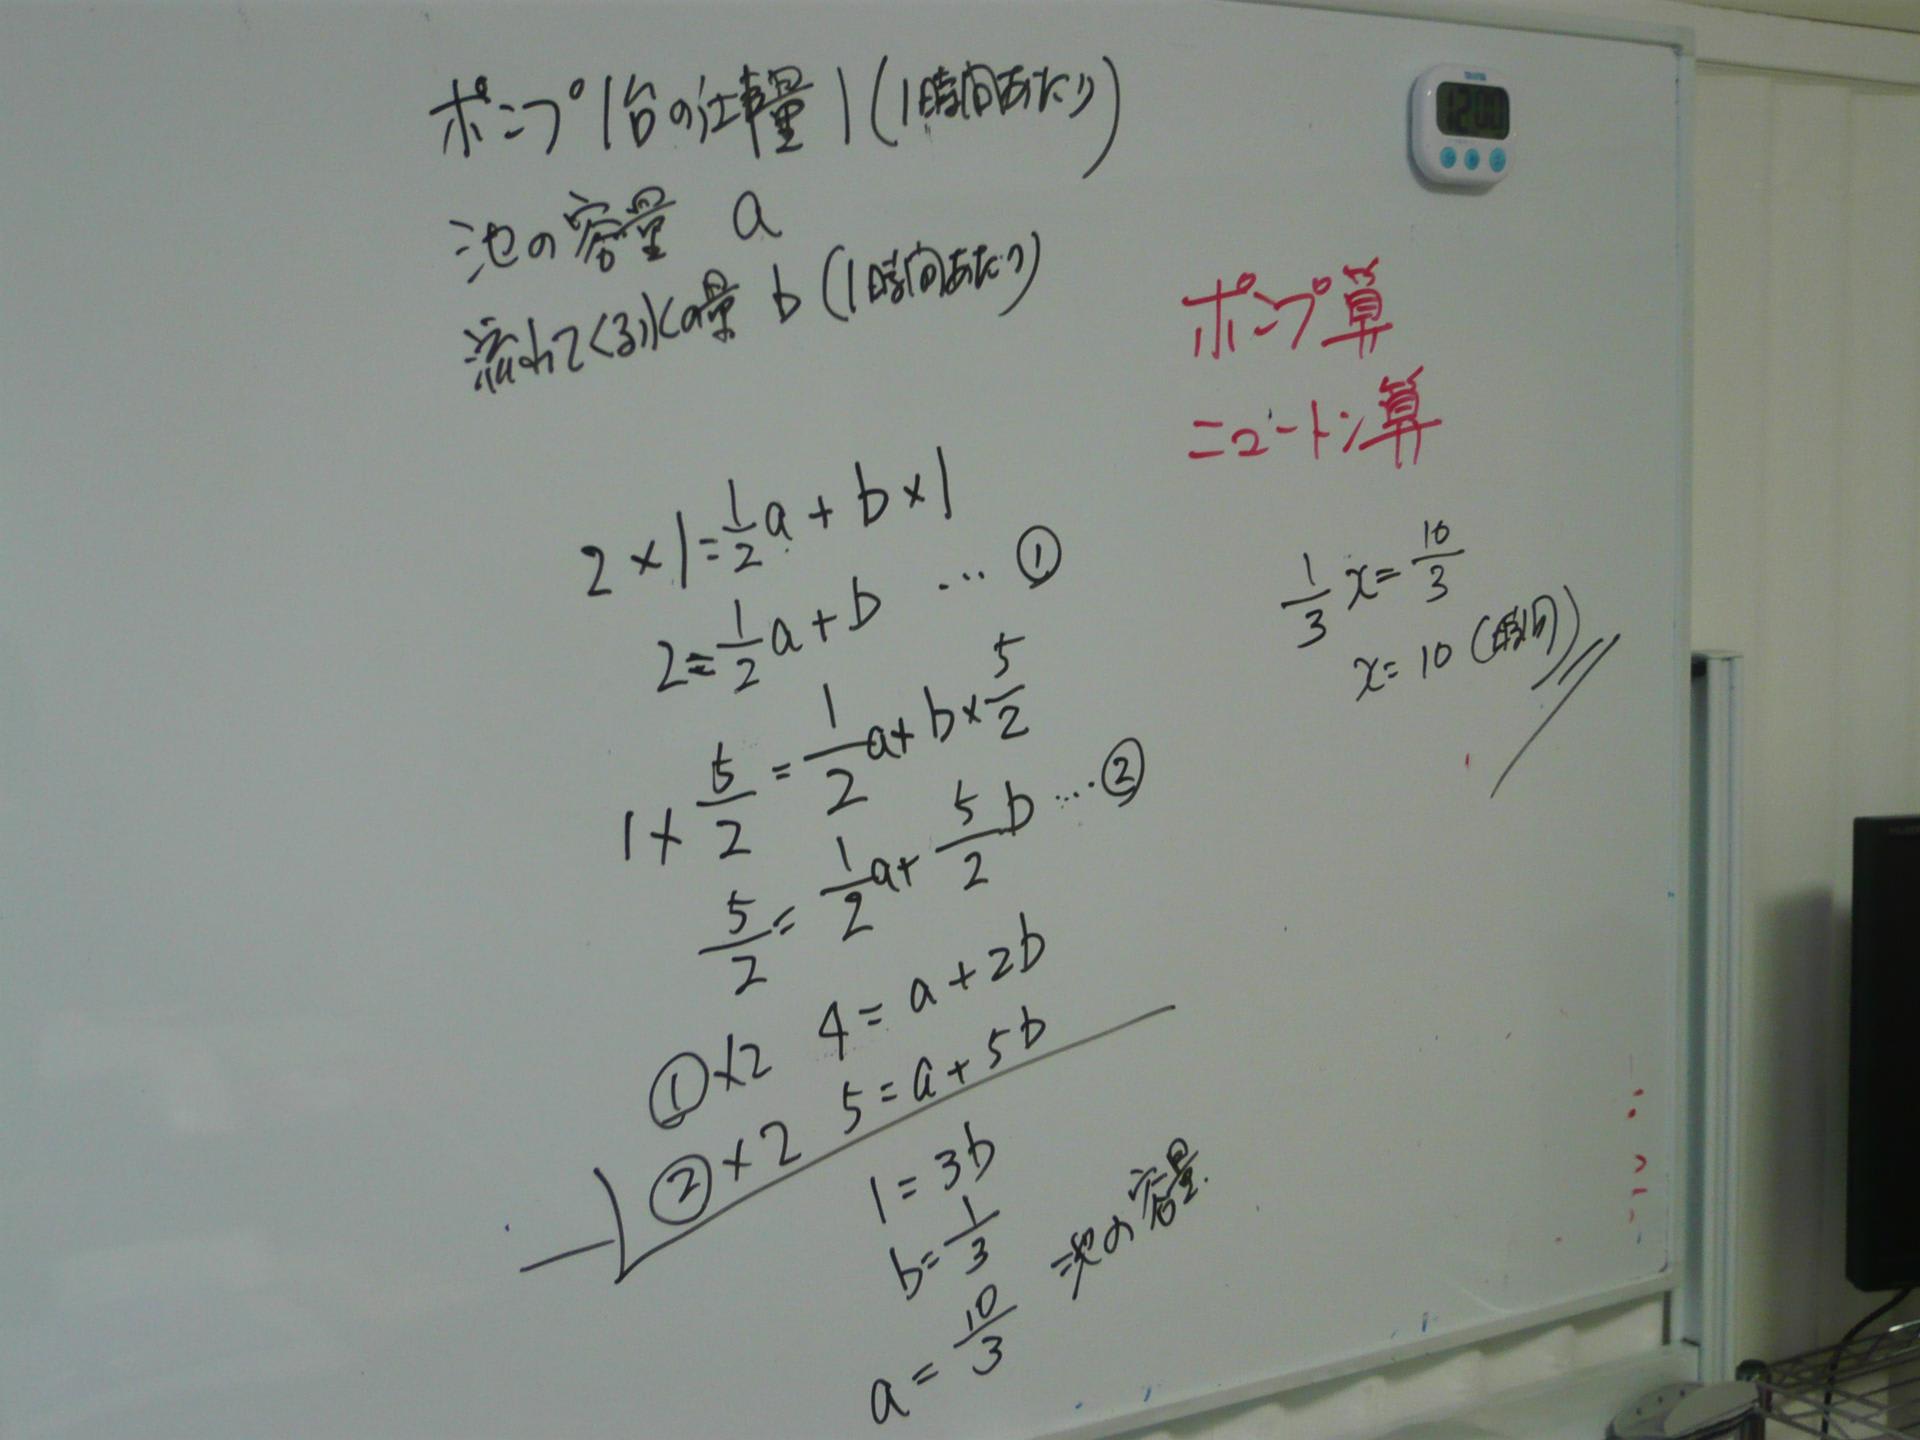 ポンプ1台の仕事量 1 (1時間あたり)
池の容量 a
流れてくる水の量 b (1時間あたり)
2×1=1/2a+b×1
2=1/2a+b … ①
1×5/2=1/2a+b×5/2
5/2=1/2a+5/2b … ②
①×2 4=a+2b
②×2 5=a+5b
1=3b
b=1/3
a=10/3 池の容量
ポンプ算
ニュートン算
1/3x=10/3
x=10 (時間)
12:00